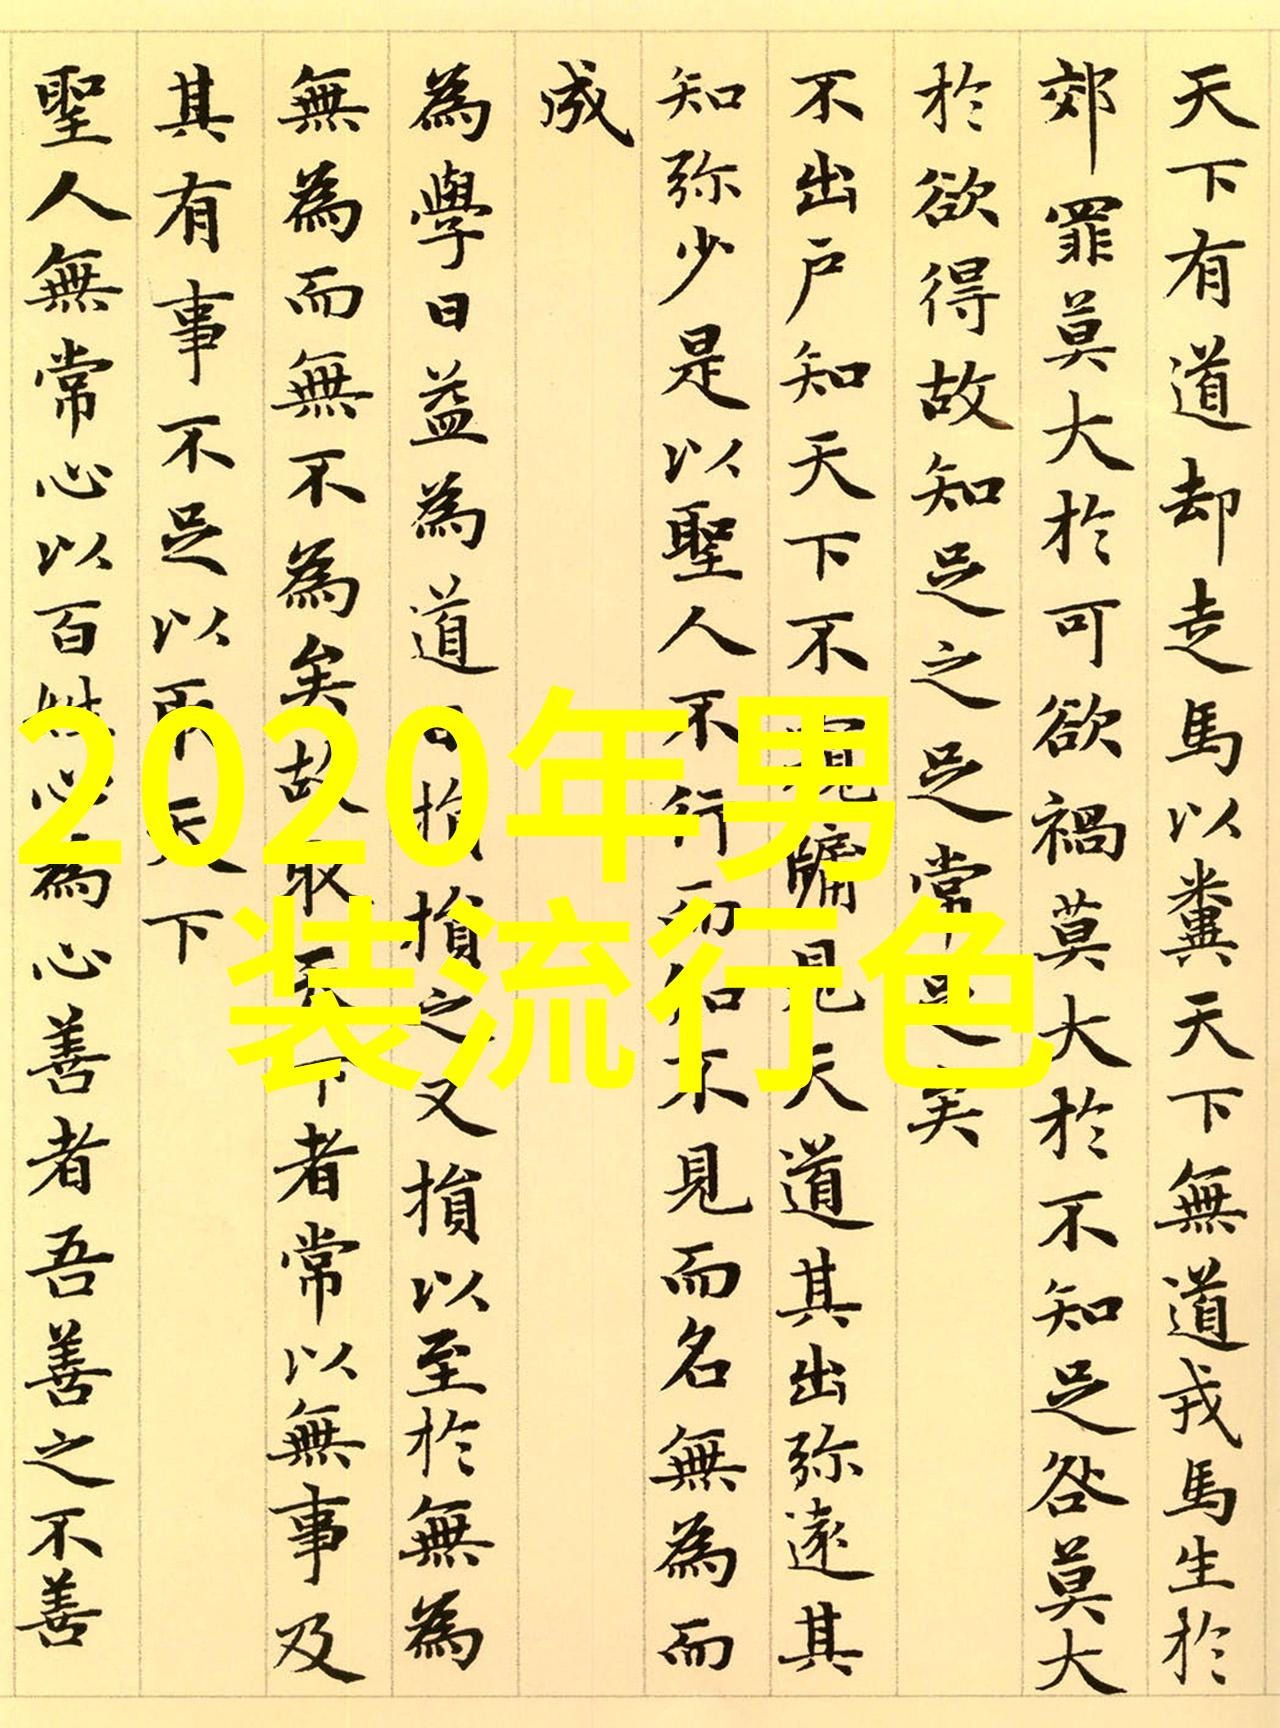 天下有道却走馬以糞天下無道戎馬生於
郊罪莫大於可欲禍莫大於不知足咎莫大
於欲得故知足之足常足矣
不出戶知天下不窺牖見天道其出弥遠其
知弥少是以聖人不行而知不見而名無為而
成
為學日益為道日損損之又損以至於無為
無為而無不為矣故取天下者常以無事及
其有事不足以取天下
聖人無常心以百姓心為心善者吾善之不善
2020年男
装流行色